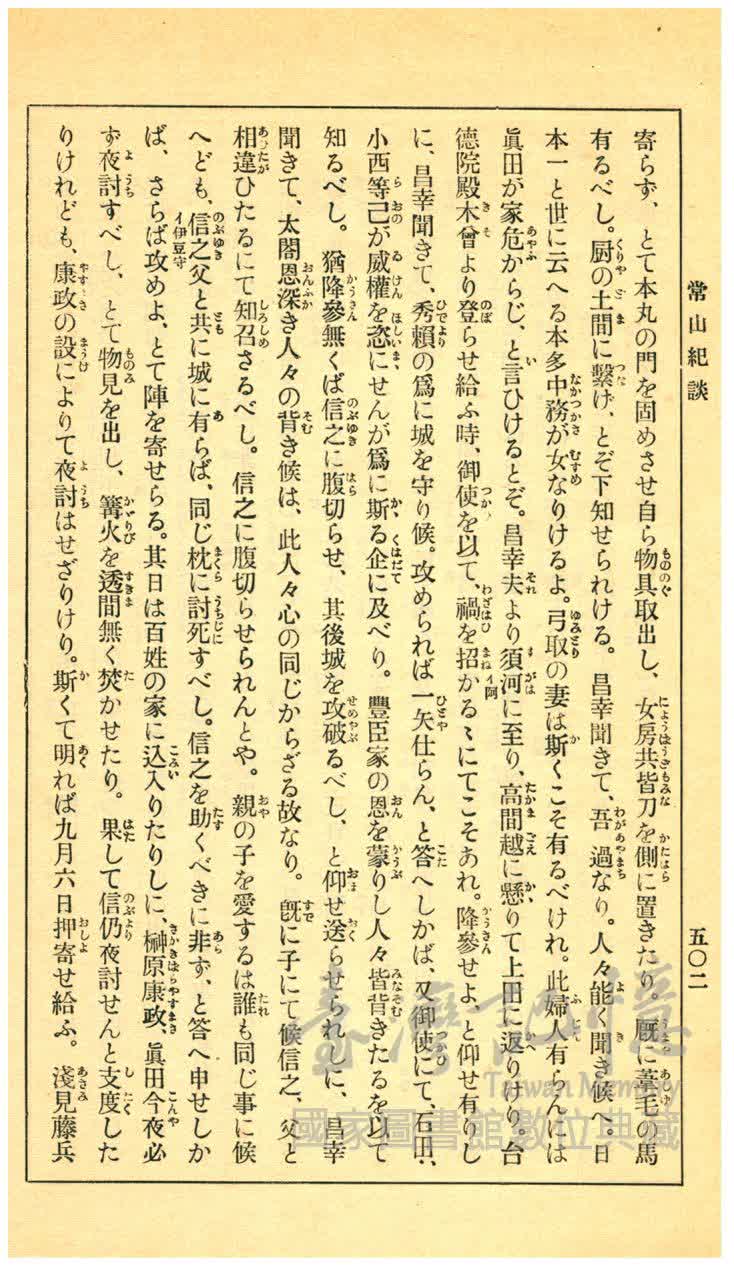 常山紀談
五〇二
寄らず、とて本丸の門を固めさせ自ら物具取出し、女房共皆刀を側に置きたり。厩に葦毛の馬
有るべし。厨の土間に繋げ、とぞ下知せられける。昌幸聞きて、吾過なり。人々能く聞き候へ。日
本一と世に云へる本多中務が女なりけるよ。弓取の妻は斯くこそ有るべけれ。此婦人有らんには
眞田が家危からじ、と言ひけるとぞ。昌幸夫より須河に至り、高間越に懸りて上田に返りけり。台
德院殿木曾より登らせ給ふ時、御使を以て、禍を招かるゝにてこそあれ。降參せよ、と仰せ有りし
に、昌幸聞きて、秀賴の爲に城を守り候。攻められば一矢仕らん、と答へしかば、又御使にて、石田、
小西等己が威權を恣にせんが爲に斯る企に及べり。豐臣家の恩を蒙りし人々皆背きたるを以て
知るべし。猶降參無くば信之に腹切らせ、其後城を攻破るべし、と仰せ送らせられしに、昌幸
聞きて、太閤恩深き人々の背き候は、此人々心の同じからざる故なり。旣に子にて候信之、父と
相違ひたるにて知召さるべし。信之に腹切らせられんとや。親の子を愛するは誰も同じ事に候
へども、信之父と共に城に有らば、同じ枕に討死すべし。信之を助くべきに非ず、と答へ申せしか
ば、さらば攻めよ、とて陣を寄せらる。其日は百姓の家に込入りたりしに、榊原康政、眞田今夜必
ず夜討すべし、とて物見を出し、篝火を透間無く焚かせたり。果して信仍夜討せんと支度した
りけれども、康政の設によりて夜討はせざりけり。斯くて明れば九月六日押寄せ給ふ。淺見藤兵
臺灣記憶
Taiwan Memory
國家圖書館數位典藏